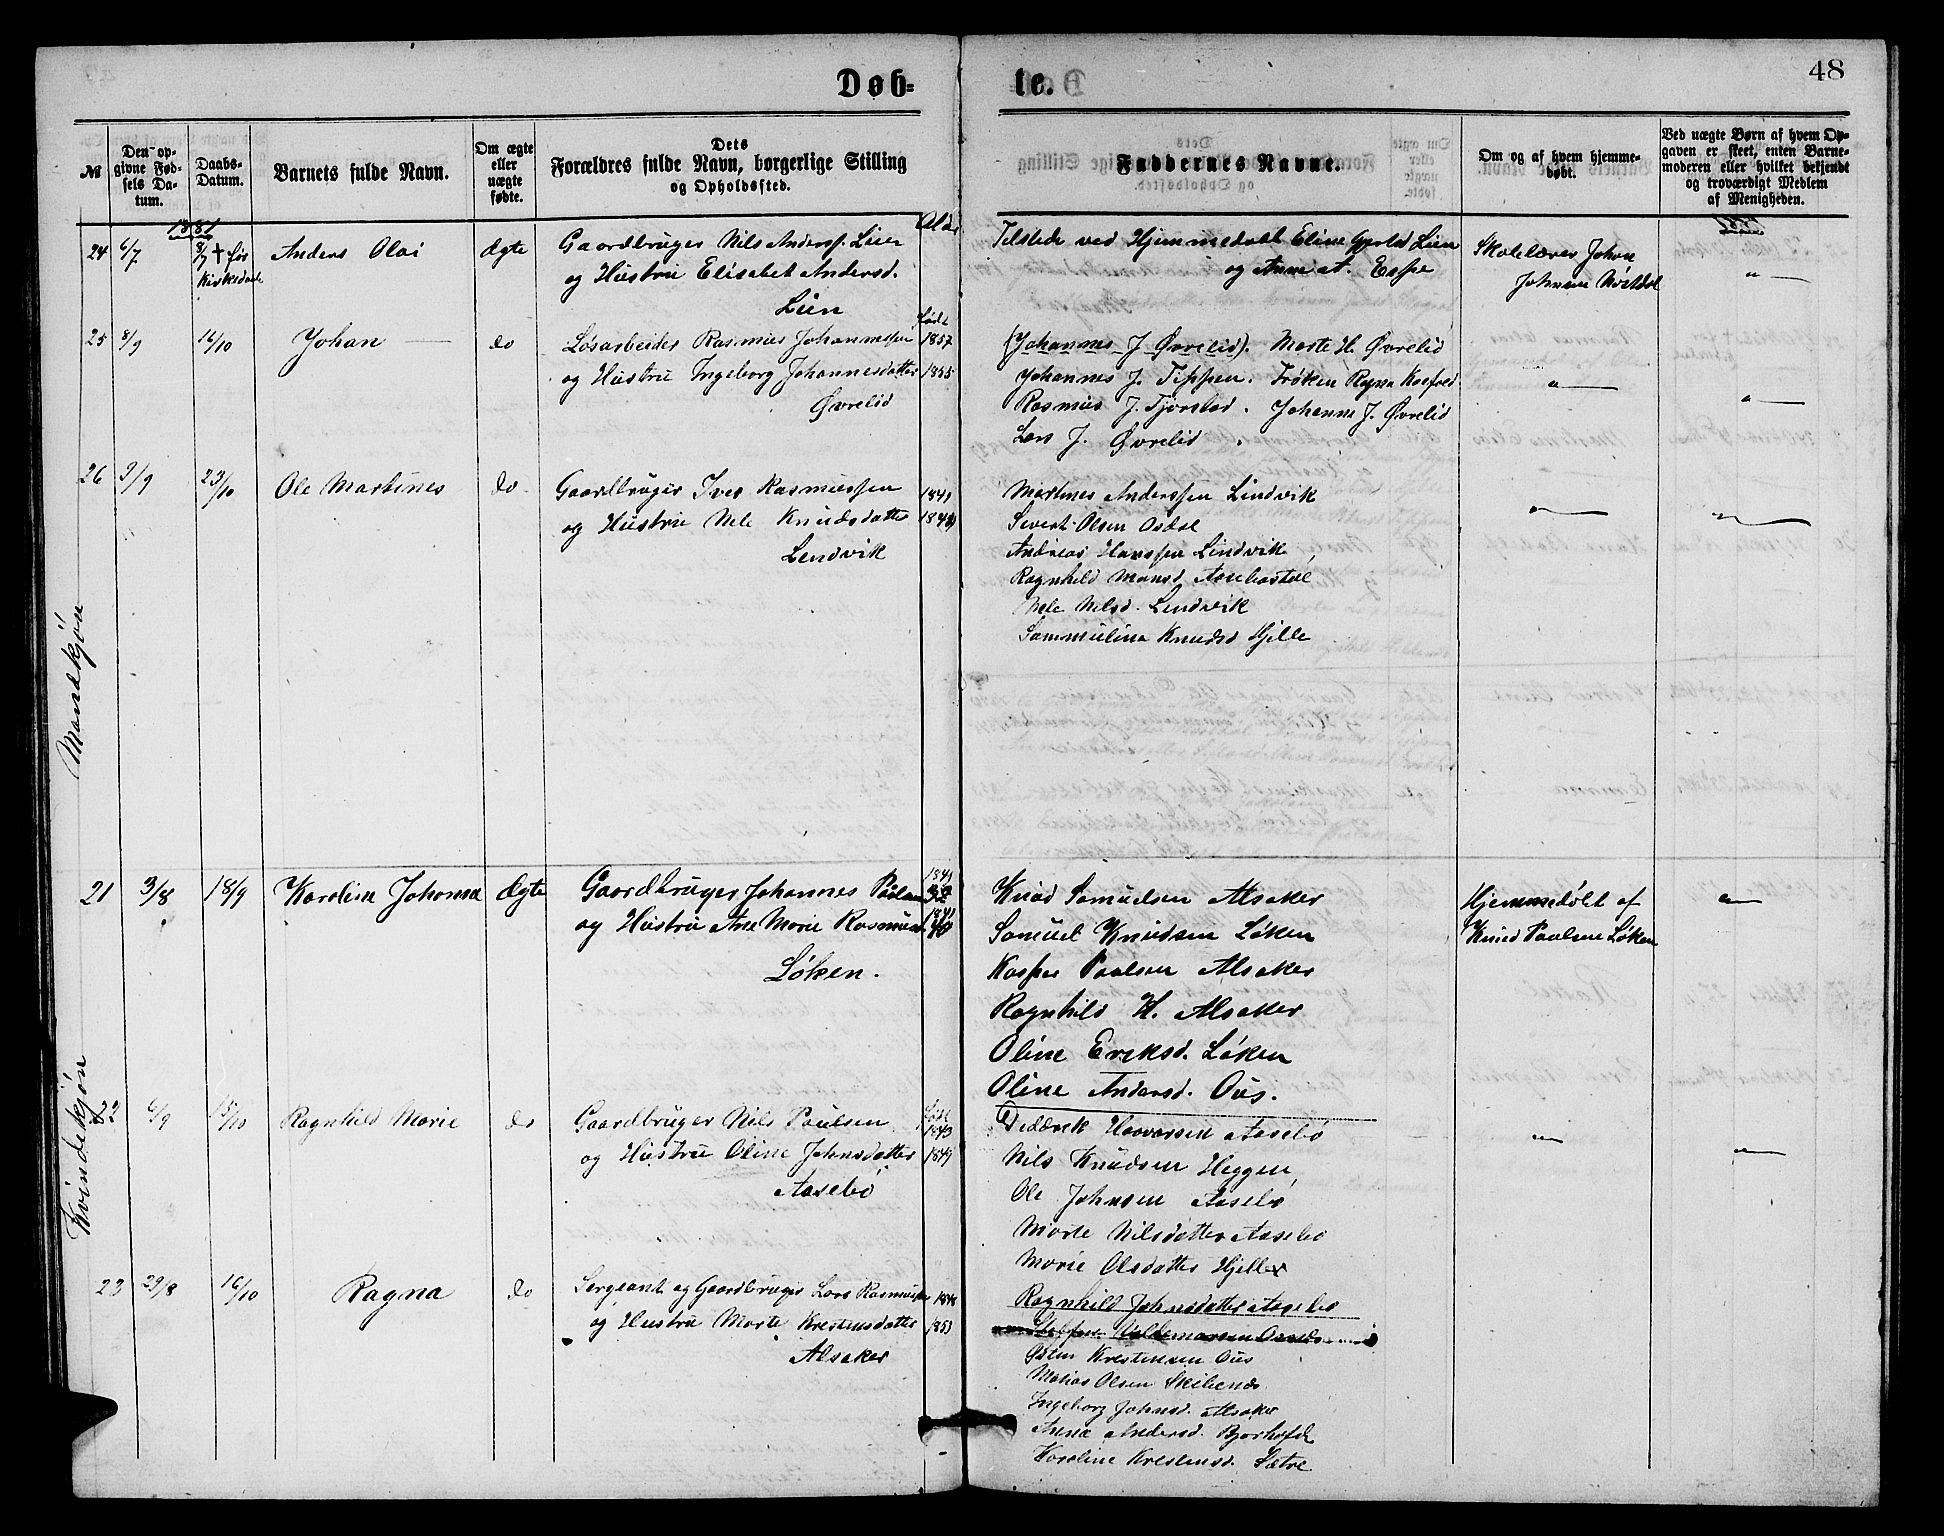 Døb=
te.
48
№
Den op=
givne Fød=
sels Da=
tum.
Daabs=
Datum.
Barnets fulde Navn.
Om ægte
eller
uægte
fødte.
Dets
Forældres fulde Navn, borgerlige Stilling
og Opholdssted.
Faddernes Navne.
Om og af hvem hjemme=
døbt.
Ved uægte Børn af hvem Op=
gaven er skeet, enten Barne=
moderen eller hvilket betjendt
og troværdigt Medlem
af Menigheden.
1881
Mandkjön
24 6/7 8/7 † før
Kirkedaab
Anders Olai
Ægte
Gaardbruger Nils Anderss. Lien
og Hustru Elisabet Andersd.
Lien
Tilstede ved Hjemmedaab Eline Lien
og Anne A. Espe
Skolelærer Johan
Johnsen Mörkdal
"
25 8/9 16/10 Johan do
Løsarbeider Rasmus Johannessen
og Hustru Ingeborg Johannesdatter
Øvrelid
född
1857
1855
(Johannes J. Øvrelid). Marte H. Øvrelid
Johannes J. Tippen. Frøken Ragna Koefoed
Rasmus J. Tjorstad. Johanne J. Øvrelid
Lars J. Øvrelid.
"
"
26 2/9 23/10 Ole Martines do
Gaardbruger Iver Rasmussen
og Hustru Nele Knudsdatter
Lendvik
1841
Martines Anderssen Lindvik
Sivert Olsen Osdal
Andreas Hanssen Lindvik
Ragnhild Monsd. Aasebøstøl
Nele Nilsd. Lendvik
Sammulina Knudsd Hjelle
"
"
Kvindekjön
21 3/8 18/9 Karolina Johanna Ægte
Gaardbruger Johannes Paulsen
og Hustru Ane Marie Rasmusd.
Løken.
1841
Knud Samuelsen Alsaker
Samuel Knudsen Løken
Kasper Paulsen Alsaker
Ragnhild H. Alsaker
Oline Eriksd. Løken
Oline Andersd. Ous.
Hjemmedøbt af
Knud Paulsen Løken
"
22 6/9 15/10 Ragnhild Marie do
Gaardbruger Nils Paulsen
og Hustru Oline Johnsdatter
Aasebø
1843
1849
Diderik Haavarsen Aasebø
Nils Knudsen Heggen
Ole Johnsen Aasebø
Marie Nilsdatter Aasebø
Marie Olsdatter Hjelle
Ragnhild Johnsdatter Aasebø
"
"
23 29/8 16/10 Ragna do
Sergeant og Gaardbruger Lars Rasmussen
og Hustru Marte Kristensdatter
Alsaker
1848
1853
Sten Krestensen Ous
Matias Olsen Skibenæs
Ingeborg Johnsd. Alsaker
Anna Andersd. Bjorhofde
Karoline Krestensd. Sætre